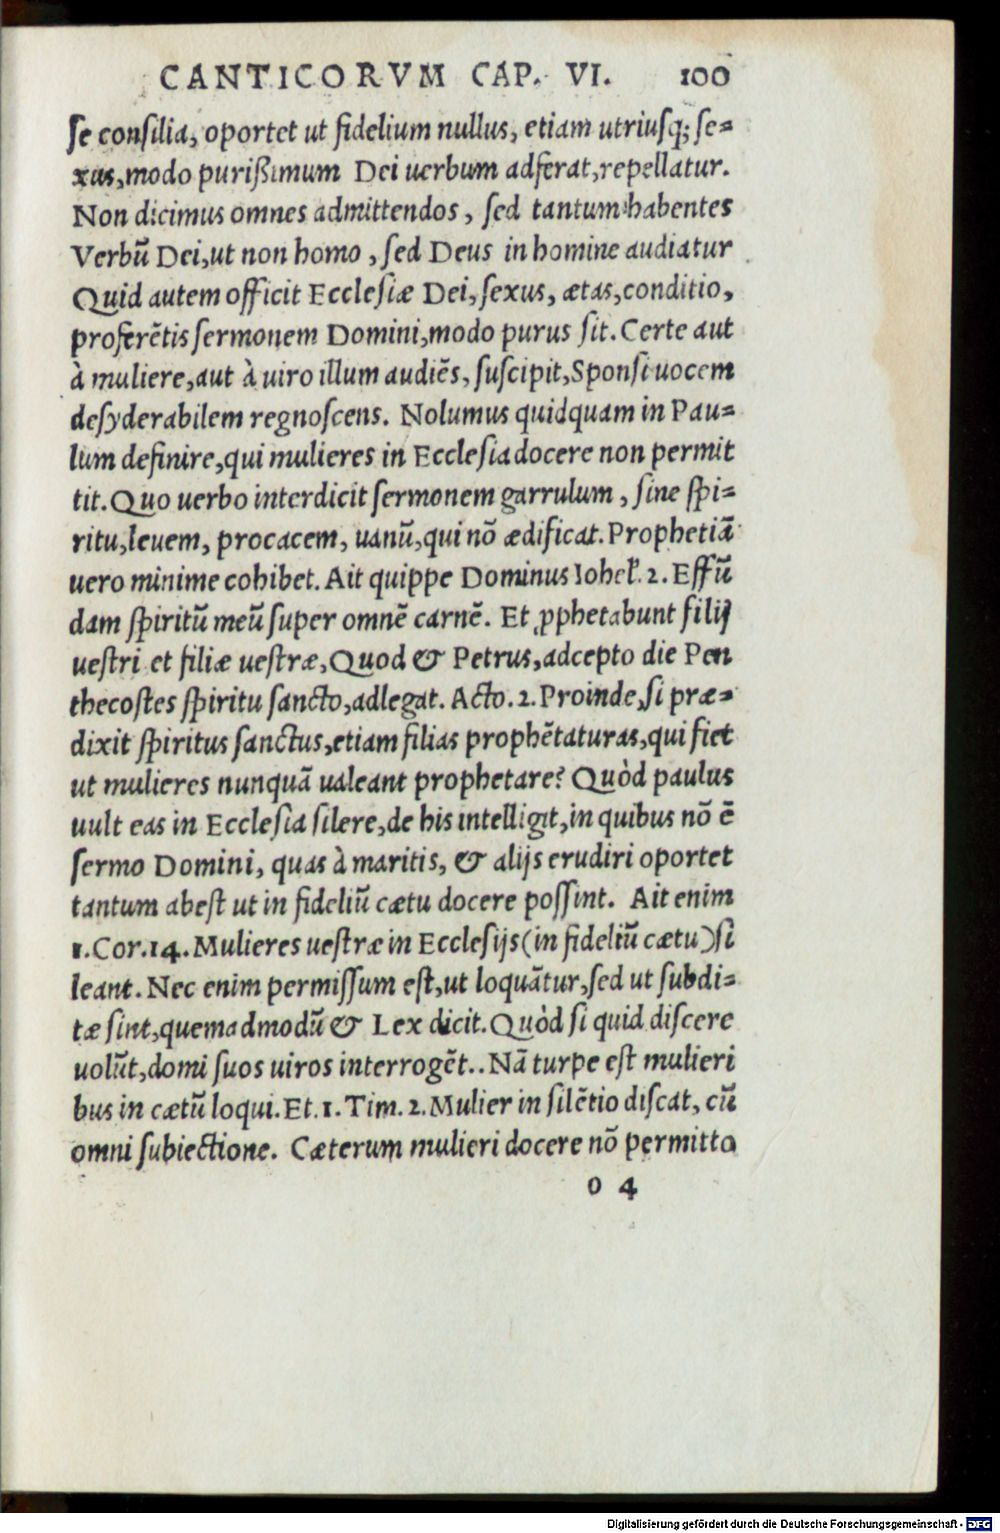 CANTICORVM CAP. VI. 100
ſe conſilia, oportet ut fidelium nullus, etiam utriuſq; ſe=
xus, modo purißimum Dei uerbum adferat, repellatur.
Non dicimus omnes admittendos, ſed tantum habentes
Verbũ Dei, ut non homo, ſed Deus in homine audiatur.
Quid autem officit Eccleſiæ Dei, ſexus, ætas, conditio,
proferẽtis ſermonem Domini, modo purus ſit. Certe aut
à muliere, aut à uiro illum audiẽs, ſuſcipit, Sponſi uocem
deſyderabilem regnoſcens. Nolumus quidquam in Pau=
lum definire, qui mulieres in Eccleſia docere non permit
tit. Quo uerbo interdicit ſermonem garrulum, ſine ſpi=
ritu, leuem, procacem, uanũ, qui nõ ædificat. Prophetiã
uero minime cohibet. Ait quippe Dominus Iohel. 2. Effũ
dam ſpiritũ meũ ſuper omnẽ carnẽ. Et ꝓphetabunt filij
ueſtri et filiæ ueſtræ, Quod & Petrus, adcepto die Pen
thecoſtes ſpiritu ſancto, adlegat. Acto. 2. Proinde, ſi præ=
dixit ſpiritus ſanctus, etiam filias prophẽtaturas, qui fiet
ut mulieres nunquã ualeant prophetare? Quòd paulus
uult eas in Eccleſia ſilere, de his intelligit, in quibus nõ ẽ
ſermo Domini, quas à maritis, & alijs erudiri oportet
tantum abeſt ut in fideliũ cætu docere poſſint. Ait enim
1. Cor. 14. Mulieres ueſtræ in Eccleſijs (in fideliũ cætu) ſi
leant. Nec enim permiſſum eſt, ut loquãtur, ſed ut ſubdi=
tæ ſint, quemadmodũ & Lex dicit. Quòd ſi quid diſcere
uolũt, domi ſuos uiros interrogẽt.. Nã turpe eſt mulieri
bus in cætũ loqui. Et. 1. Tim. 2. Mulier in ſilẽtio diſcat, cũ
omni ſubiectione. Cæterum mulieri docere nõ permitto
o 4
Digitalisierung gefördert durch die Deutsche Forschungsgemeinschaft - DFG